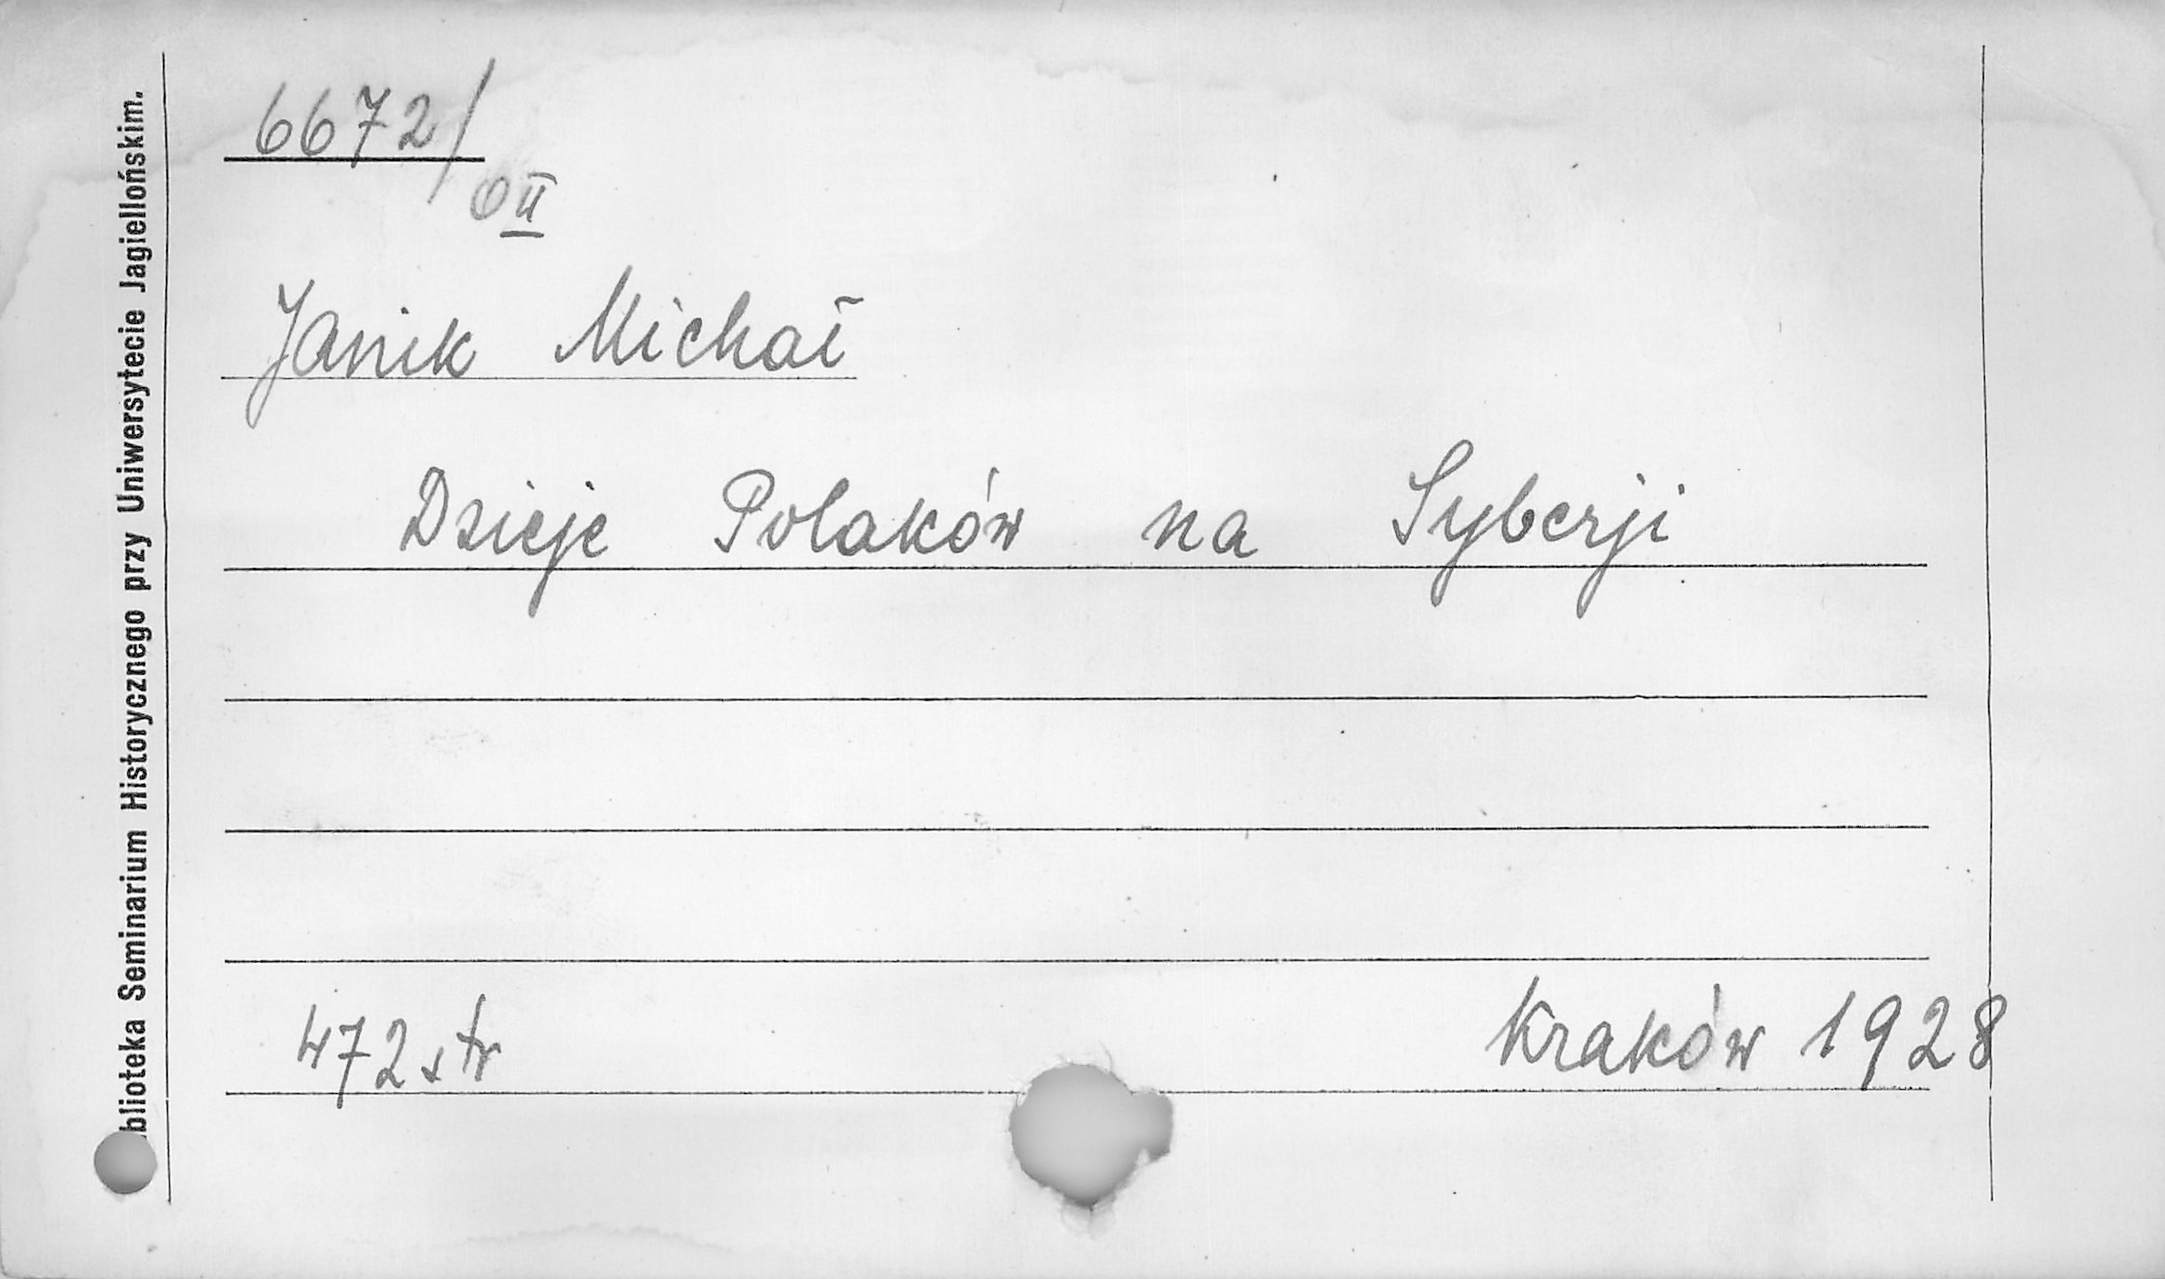 6672/
O II
Janik Michał
Dzieje Polaków na Syberji
472 str
Kraków 1928
blioteka Seminarium Historycznego przy Uniwersytecie Jagiellońskim.